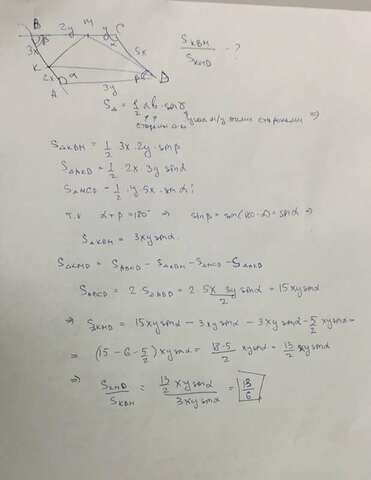 B 2y M y C
β
3x 5x
K
2x α β D
A 3y
S_KBM / S_KMD - ?
S_Δ = 1/2 ab · sin γ
стороны угол м/у этими сторонами ⇒
S_ΔKBM = 1/2 3x · 2y · sin β
S_ΔAKD = 1/2 · 2x · 3y sin α
S_ΔMCD = 1/2 · y · 5x · sin α;
т.к α + β = 180° ⇒ sin β = sin(180 - α) = sin α ⇒
S_ΔKBM = 3xy sin α
S_ΔKMD = S_ABCD - S_ΔKBM - S_ΔMCD - S_ΔAKD
S_ABCD = 2 · S_ΔABD = 2 · 5x · 3y / 2 sin α = 15xy sin α
⇒ S_KMD = 15xy sin α - 3xy sin α - 3xy sin α - 5/2 xy sin α =
= (15 - 6 - 5/2) xy sin α = 18-5 / 2 xy sin α = 13/2 xy sin α
⇒ S_KMD / S_KBM = 13/2 xy sin α / 3xy sin α = 13/6